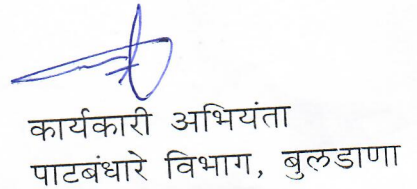 कार्यकारी अभियंता
पाटबंधारे विभाग, बुलडाणा